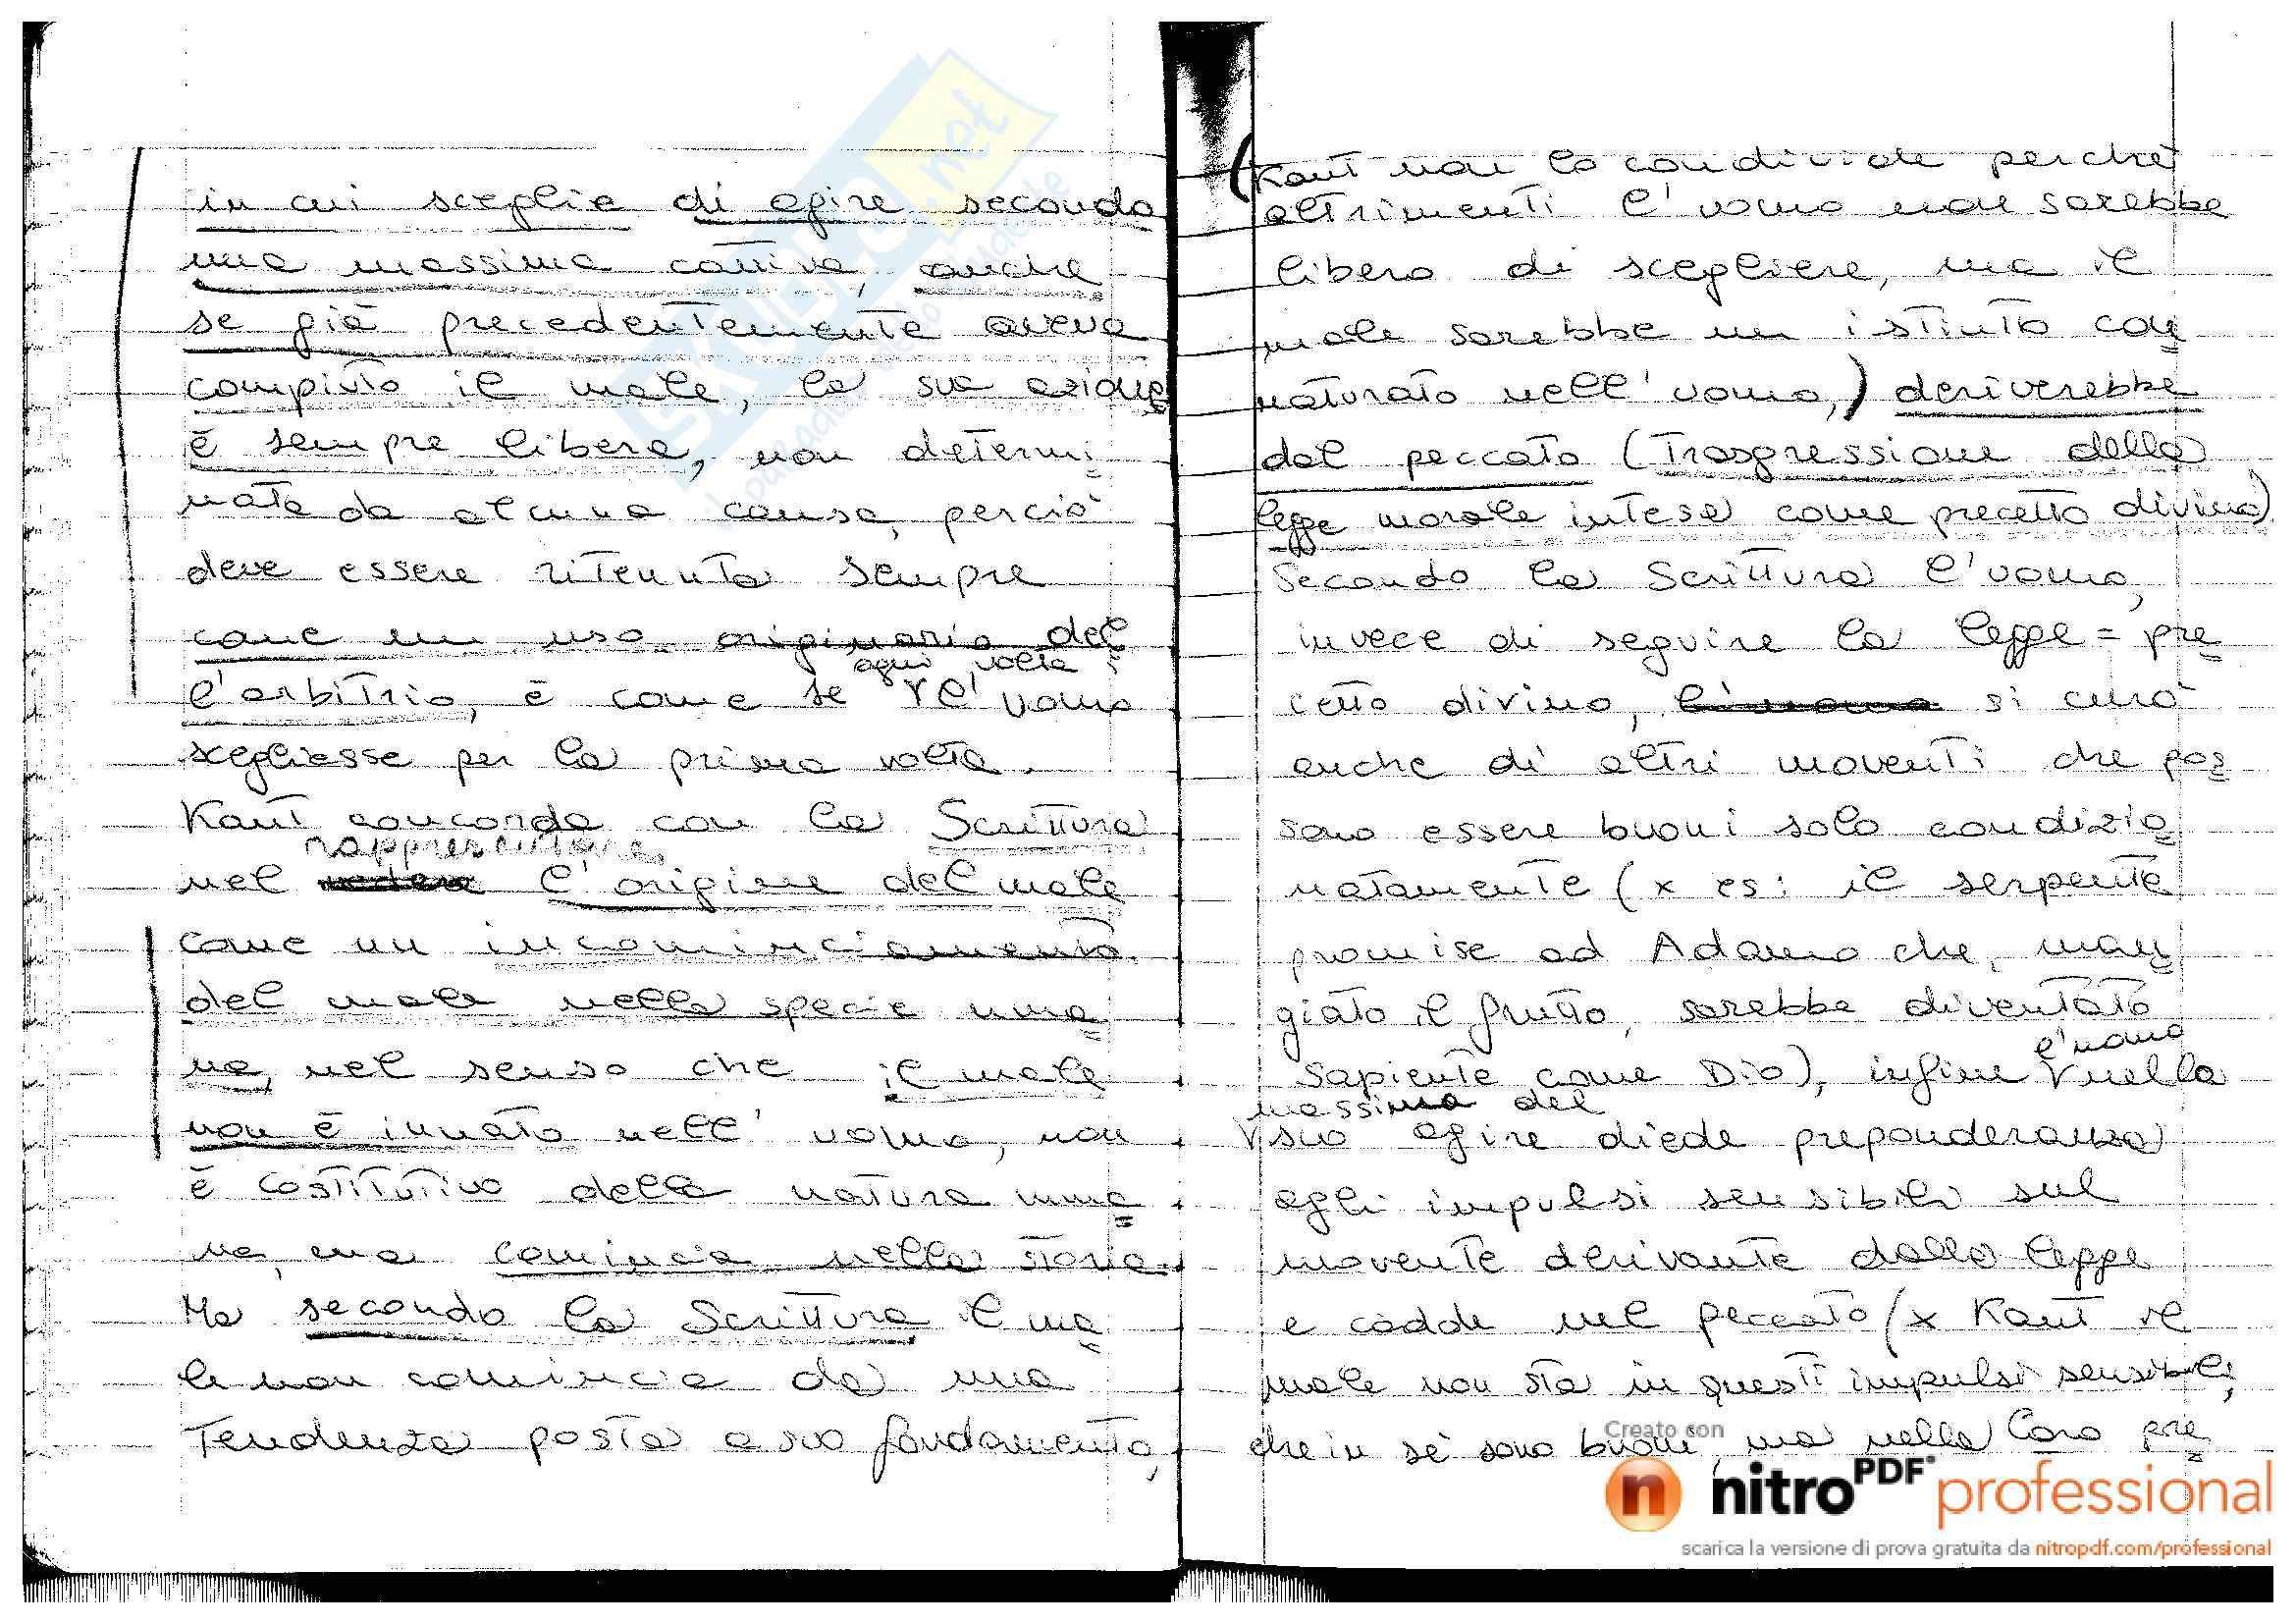 in cui sceglie di agire secondo
una massima cattiva, anche
se già precedentemente aveva
compiuto il male, la sua azione
è sempre libera, non determi
nata da alcuna causa, perciò
deve essere ritenuta sempre
come un uso originario del
l'arbitrio, è come se ogni volta l'uomo
scegliesse per la prima volta.
Kant concorda con la Scrittura
nel rappresentare l'origine del male
come un incominciamento
del male nella specie uma
na, nel senso che il male
non è innato nell'uomo, non
è costitutivo della natura uma
na, ma comincia nella storia.
Ma secondo la Scrittura il ma
le non comincia da una
tendenza posta a suo fondamento,
(Kant non lo condivide perché
altrimenti l'uomo non sarebbe
libero di scegliere, ma il
male sarebbe un istinto con
naturato nell'uomo,) deriverebbe
dal peccato (trasgressione della
legge morale intesa come precetto divino).
Secondo la Scrittura l'uomo,
invece di seguire la legge = pre
cetto divino, si curò
anche di altri moventi che pos
sono essere buoni solo condizio
natamente (x es: il serpente
promise ad Adamo che, man
giato il frutto, sarebbe diventato
sapiente come Dio), infine l'uomo nella
massima del suo agire diede preponderanza
agli impulsi sensibili sul
movente derivante dalla legge
e cadde nel peccato (x Kant il
male non sta in questi impulsi sensibili,
che in sé sono buoni, ma nella loro pre
SKUOLA.net
Creato con
nitro PDF professional
scarica la versione di prova gratuita da nitropdf.com/professional